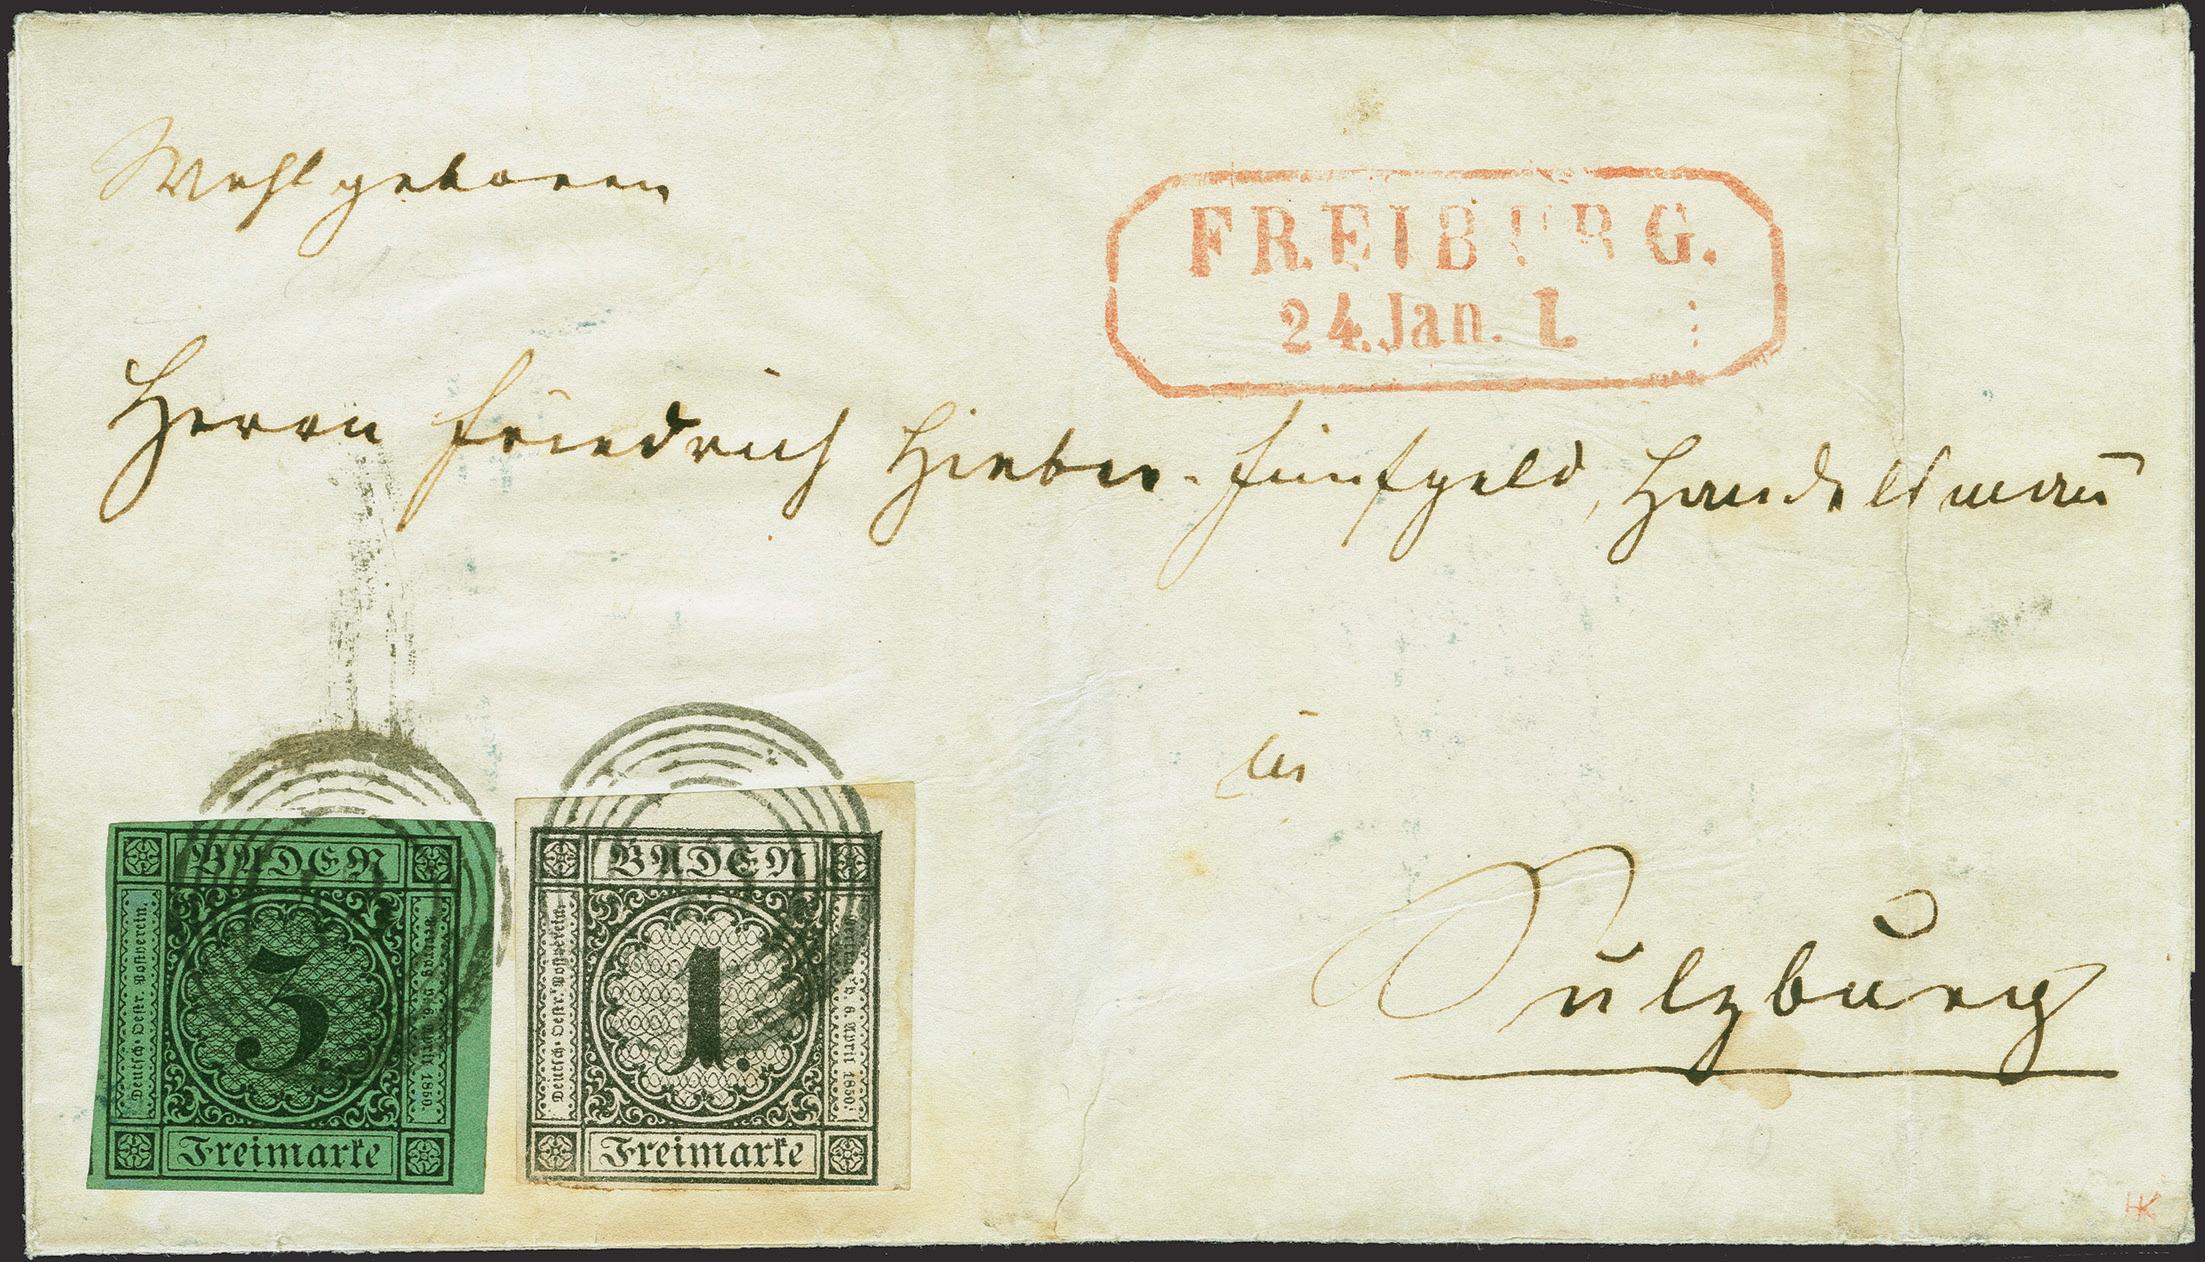 Wohlgeboren
FREIBURG.
24. Jan. 1.
Herrn Friedrich Hieber-Fünfgeld, Handelsmañ
in
Sulzburg
BADEN
Deutsch-Oestr. Postverein.
3.
6. April 1850.
Freimarke
BADEN
Deutsch-Oestr. Postverein.
1.
v. 6. April 1850.
Freimarke
HK